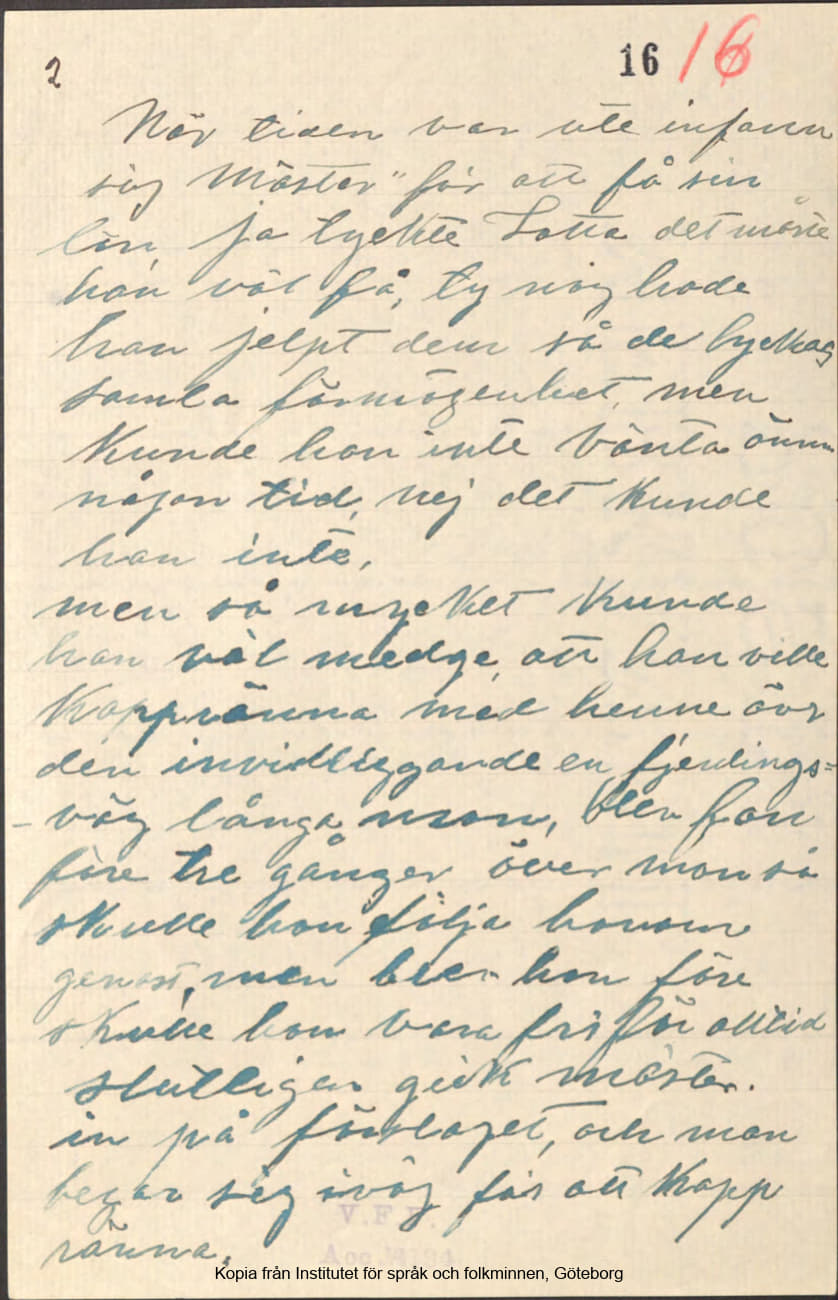 2
16 16
När tiden var ute infann
sig Mäster" för att få sin
lön, ja tyckte Lotta det måste
han väl få, ty nog hade
han jelpt dem så de lyckas
samla förmögenhet, men
kunde han inte vänta ännu
någon tid, nej det kunde
han inte,
men så mycket kunde
han väl medge, att han ville
kappränna med henne över
den invidliggande en fjerdings=
-väg långa mon, blev han
före tre gånger över mon så
skulle hon följa honom
genast, men blev hon före
skulle hon vara fri för alltid
slutligen gick mäster.
in på förslaget, och man
begav sig iväg för att kapp
ränna.
V.F.F.
Acc.
Kopia från Institutet för språk och folkminnen, Göteborg